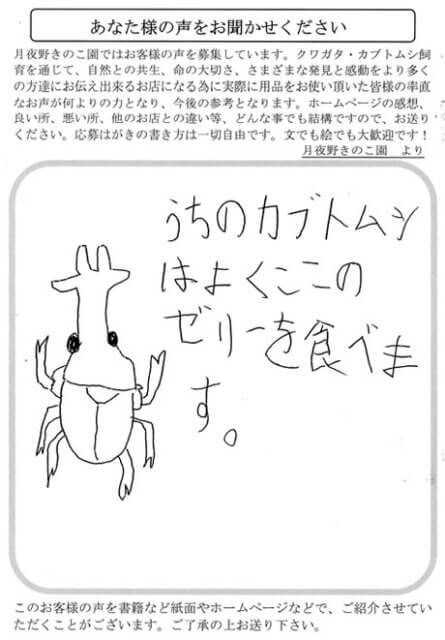 あなた様の声をお聞かせください
月夜野きのこ園ではお客様の声を募集しています。クワガタ・カブトムシ飼
育を通じて、自然との共生、命の大切さ、さまざまな発見と感動をより多く
の方達にお伝え出来るお店になる為に実際に用品をお使い頂いた皆様の率直
なお声が何よりの力となり、今後の参考となります。ホームページの感想、
良い所、悪い所、他のお店との違い等、どんな事でも結構ですので、お送り
ください。応募はがきの書き方は一切自由です。文でも絵でも大歓迎です！
月夜野きのこ園　より
うちのカブトムシ
はよくここの
ゼリーを食べま
す。
このお客様の声を書籍など紙面やホームページなどで、ご紹介させてい
ただくことがございます。ご了承の上お送り下さい。